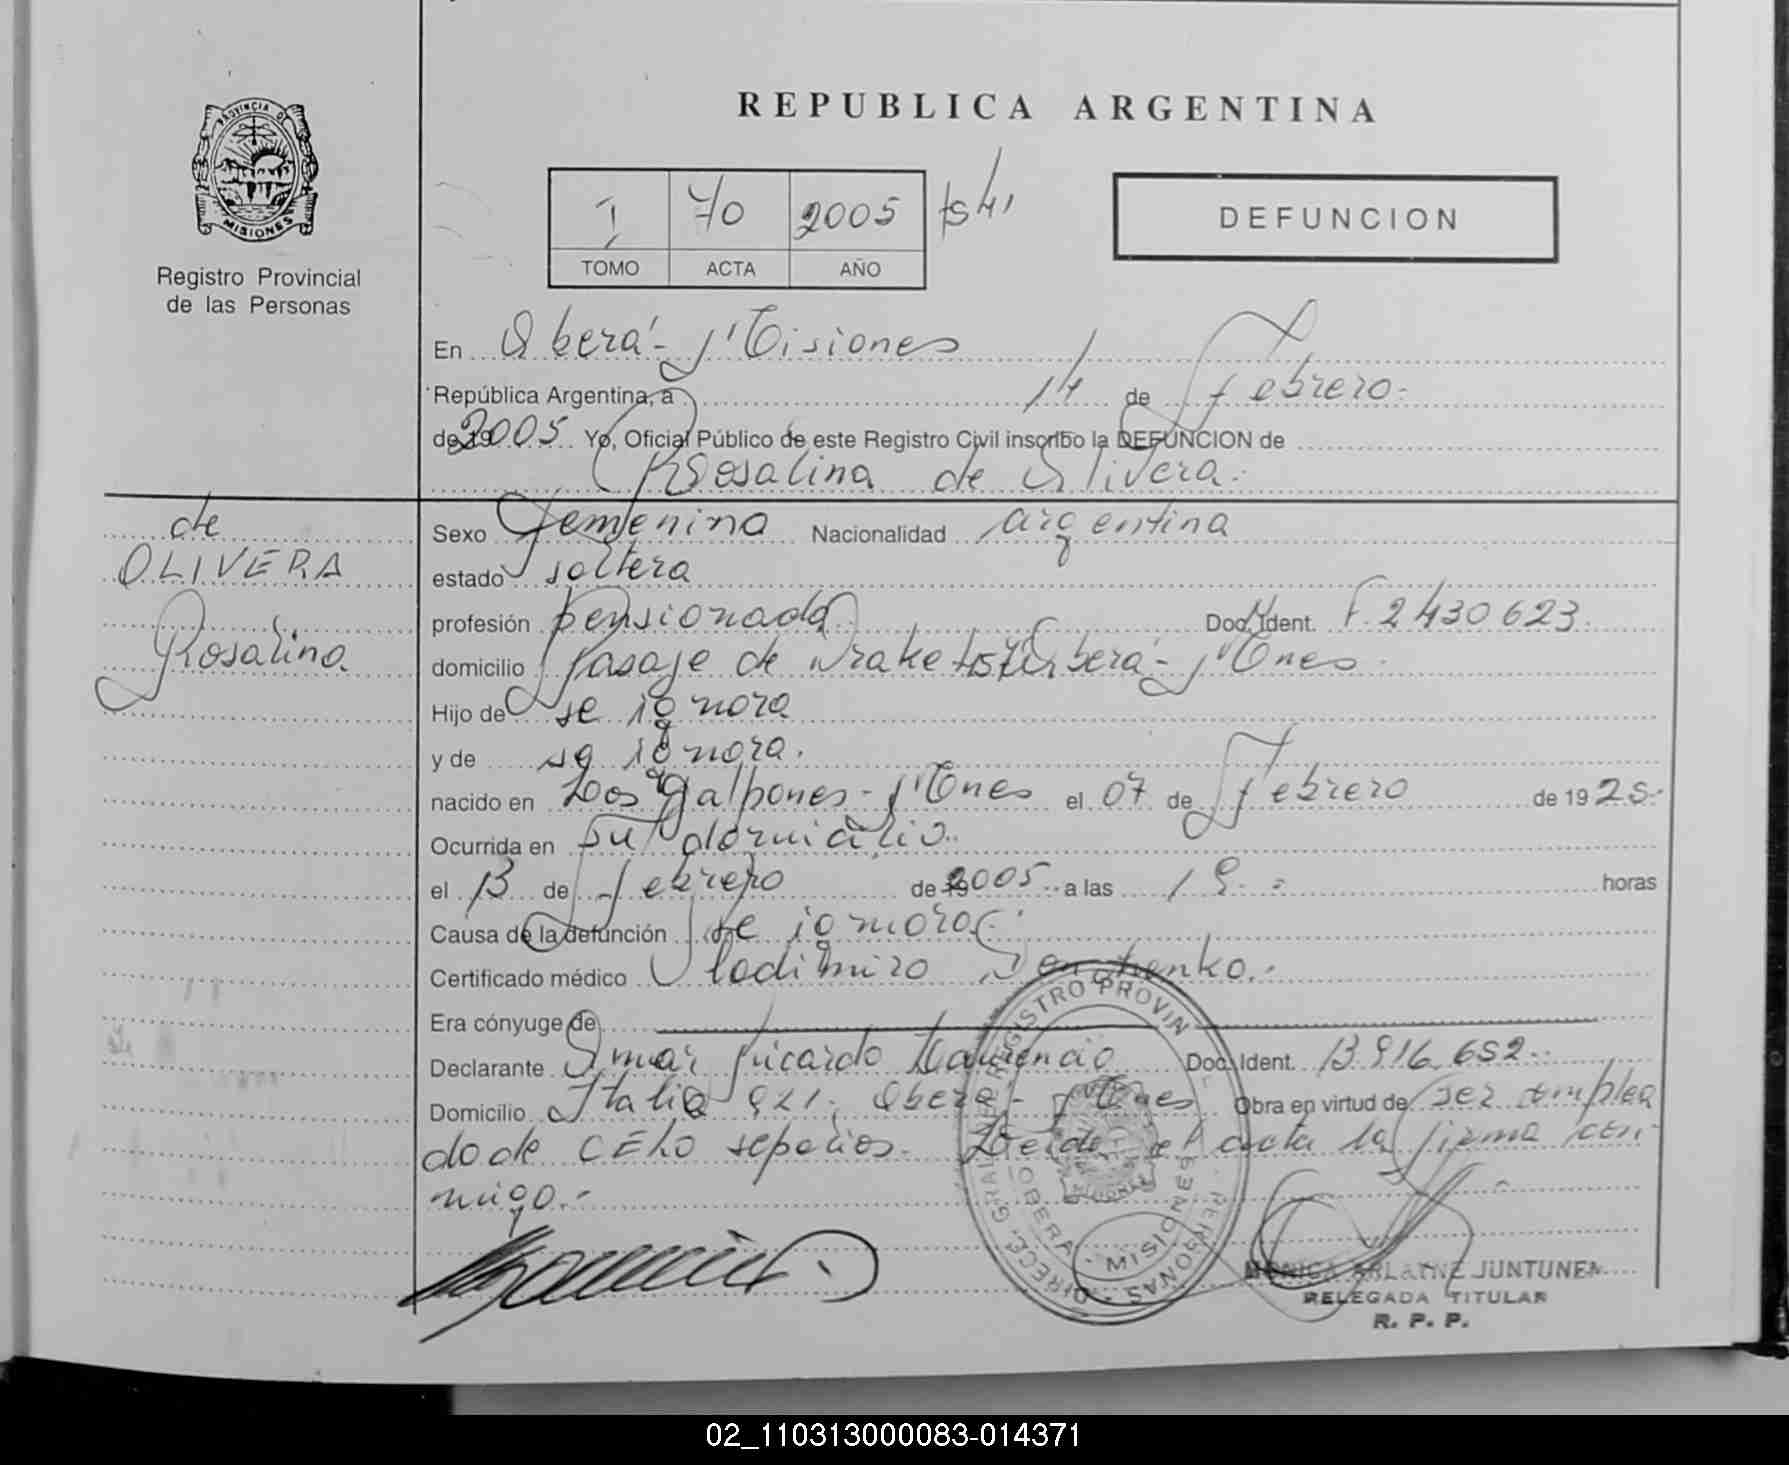 PROVINCIA DE
MISIONES
Registro Provincial
de las Personas
REPUBLICA ARGENTINA
I 70 2005
TOMO ACTA AÑO
DEFUNCION
En Oberá - Misiones
República Argentina, a 14 de Febrero.
de 19 2005 Yo, Oficial Público de este Registro Civil inscribo la DEFUNCION de
Rosalina de Olivera.
de
OLIVERA
Rosalina
Sexo femenina Nacionalidad argentina
estado soltera
profesión pensionada Doc. Ident. F. 2430623.
domicilio Pasaje de Oberá - Mnes.
Hijo de se ignora
y de se ignora.
nacido en Los Galpones - Mnes el 07 de Febrero de 19 25.
Ocurrida en su domicilio.
el 13 de Febrero de 19 2005 a las 19. horas
Causa de la defunción se ignora.
Certificado médico
Era cónyuge de
Declarante Omar Ricardo Doc. Ident. 13.916.652.
Domicilio Italia 921, Oberá - Mnes Obra en virtud de ser emplea
do de CELO sepelios. Leída el acta la firma con
migo.
DIRECC. GRAL. DEL REGISTRO PROVIN DE LAS PERSONAS
OBERA - MISIONES
MONICA JUNTUNEN
DELEGADA TITULAR
R. P. P.
02_110313000083-014371